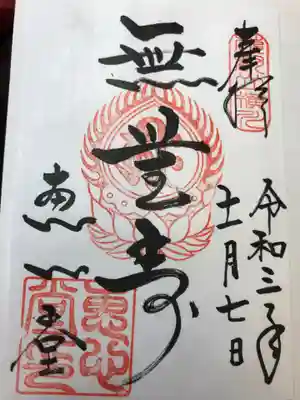 奉拝
令和三年
十一月七日
無量寿
恵心堂